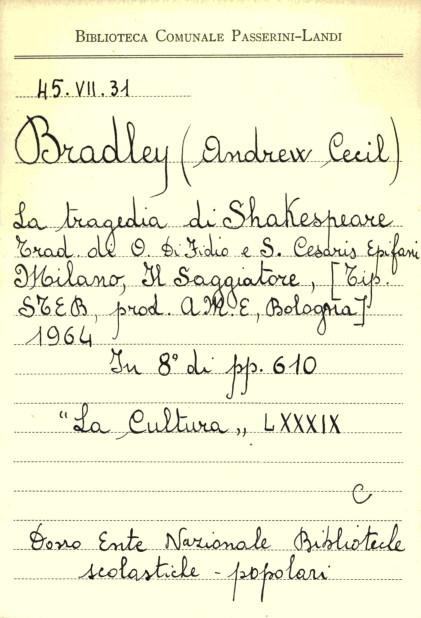 BIBLIOTECA COMUNALE PASSERINI-LANDI
45.VII.31
Bradley (Andrew Cecil)
La tragedia di Shakespeare
Trad. de O. Di Fidio e S. Cesaris Epifani
Milano, Il Saggiatore, [Tip.
STEB, prod. A.M.E, Bologna]
1964
In 8° di pp. 610
"La Cultura„ LXXXIX
C
Dono Ente Nazionale Biblioteche
scolastiche - popolari